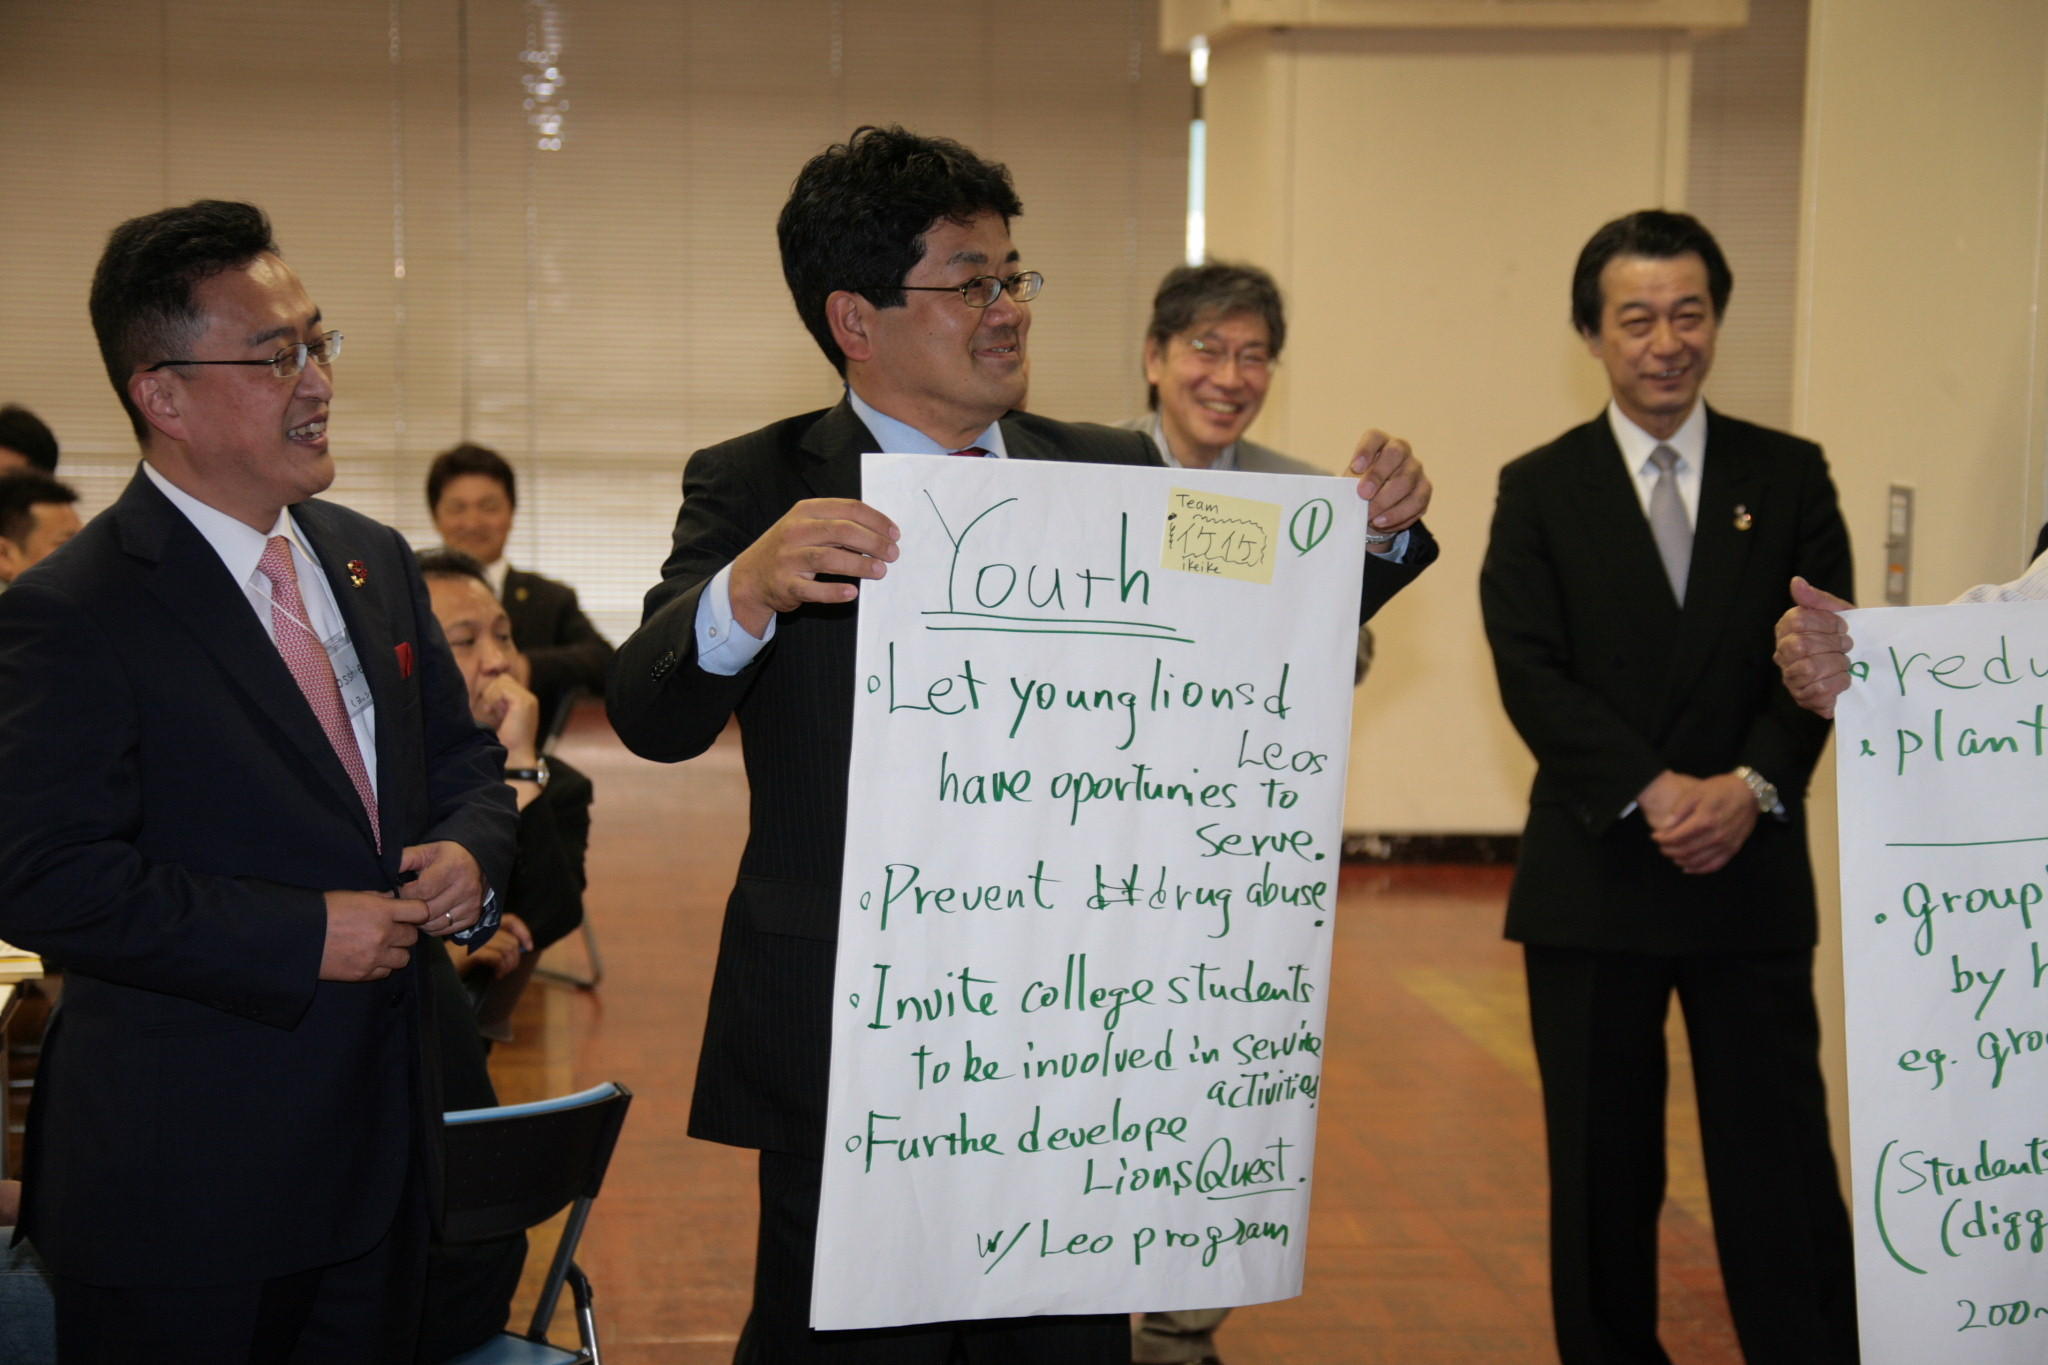 Youth
Team
イケイケ
ikeike
1
Let young lions d
Leos
have oportunies to
serve.
Prevent drug abuse.
Invite college students
to be involved in service
activities
Furthe develope
Lions Quest.
w/ Leo program
redu
plant
group
by h
eg. gro
(Students
(digg
200~